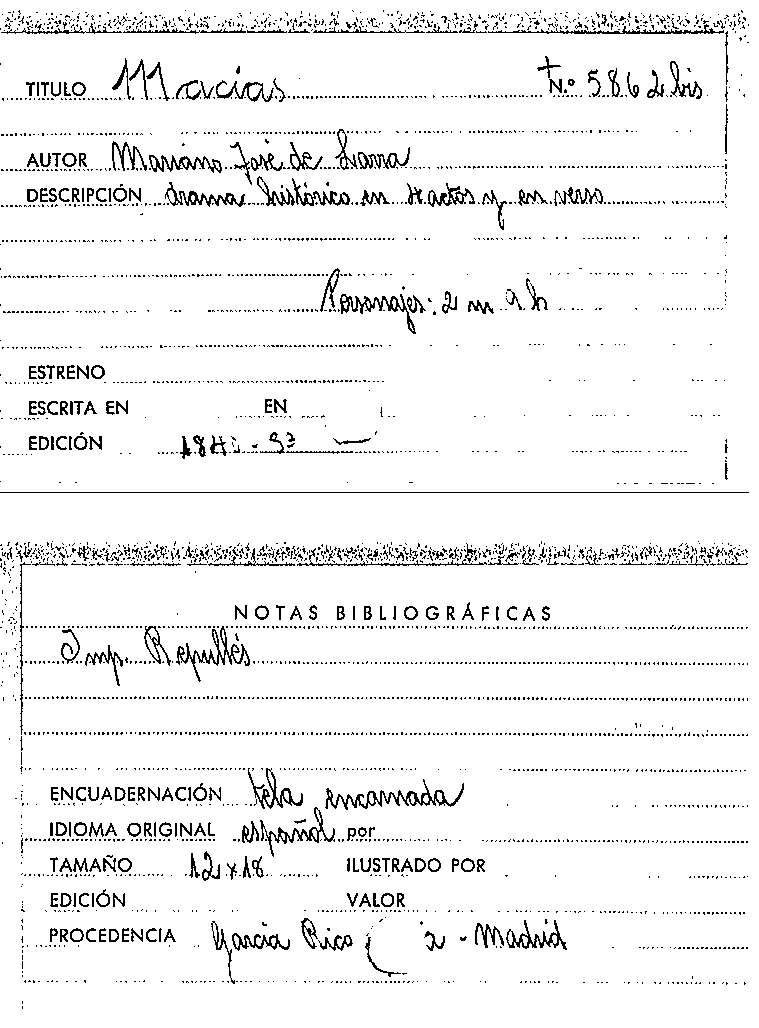 TITULO Macías N.º 5862 bis
AUTOR Mariano José de Larra
DESCRIPCIÓN drama histórico en 4 actos y en verso
Personajes: 2 m 9 h
ESTRENO
ESCRITA EN EN
EDICIÓN
NOTAS BIBLIOGRÁFICAS
Imp. Repullés
ENCUADERNACIÓN tela encarnada
IDIOMA ORIGINAL español por
TAMAÑO 12x18 ILUSTRADO POR
EDICIÓN VALOR
PROCEDENCIA García Rico - Madrid